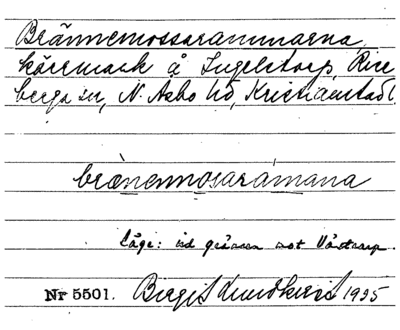 Brännemossarammarna,
kärrmark å Ingelstorp, Rise
berga sn, N. Åsbo hd, Kristianstads l.
brænemosaramana
Läge: vid gränsen mot Våxtorp.
Nr 5501. Birgit Lundkvist 1935